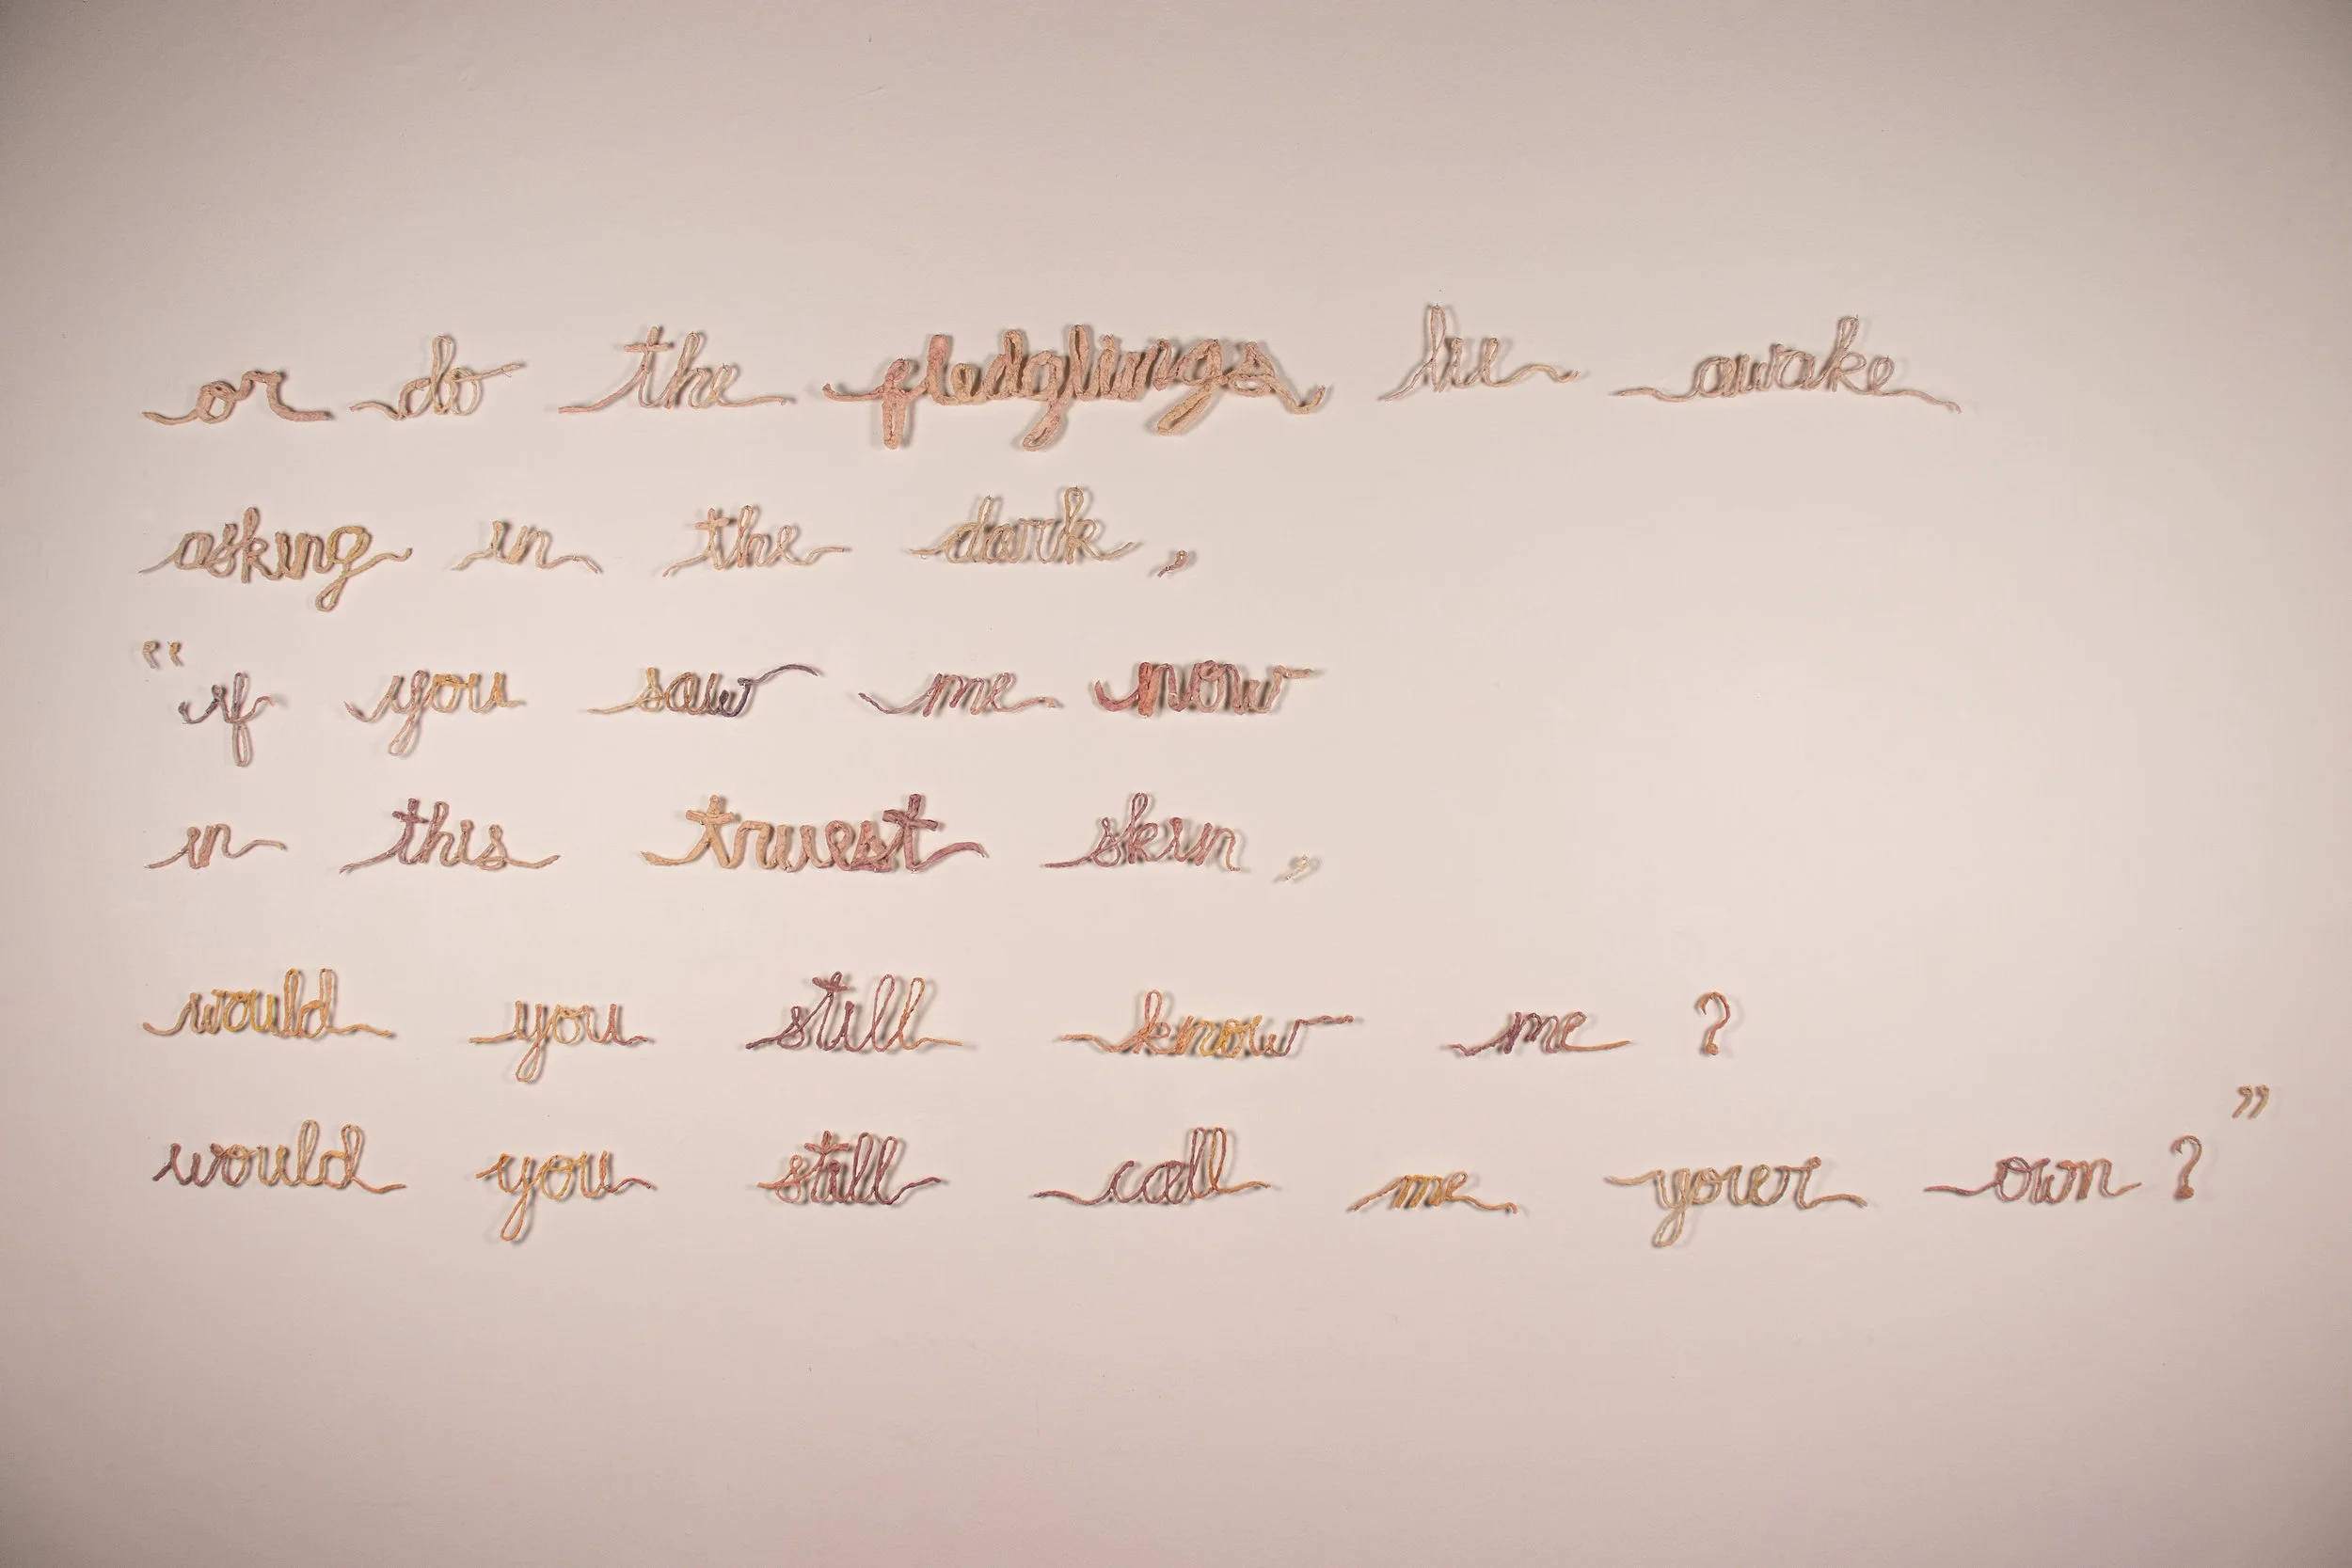 or do the fledglings lie awake
asking in the dark,
“if you saw me now
in this truest skin,
would you still know me?
would you still call me your own?”